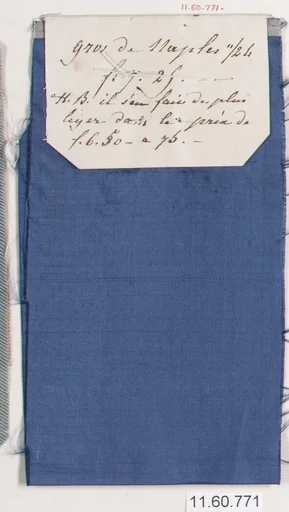 11.60.771.
gros de Naples 11/24
f. 7. 25. —
N.B. il s'en fait de plus
leger dans les prix de
f. 6. 50 – a 75. –
11.60.771